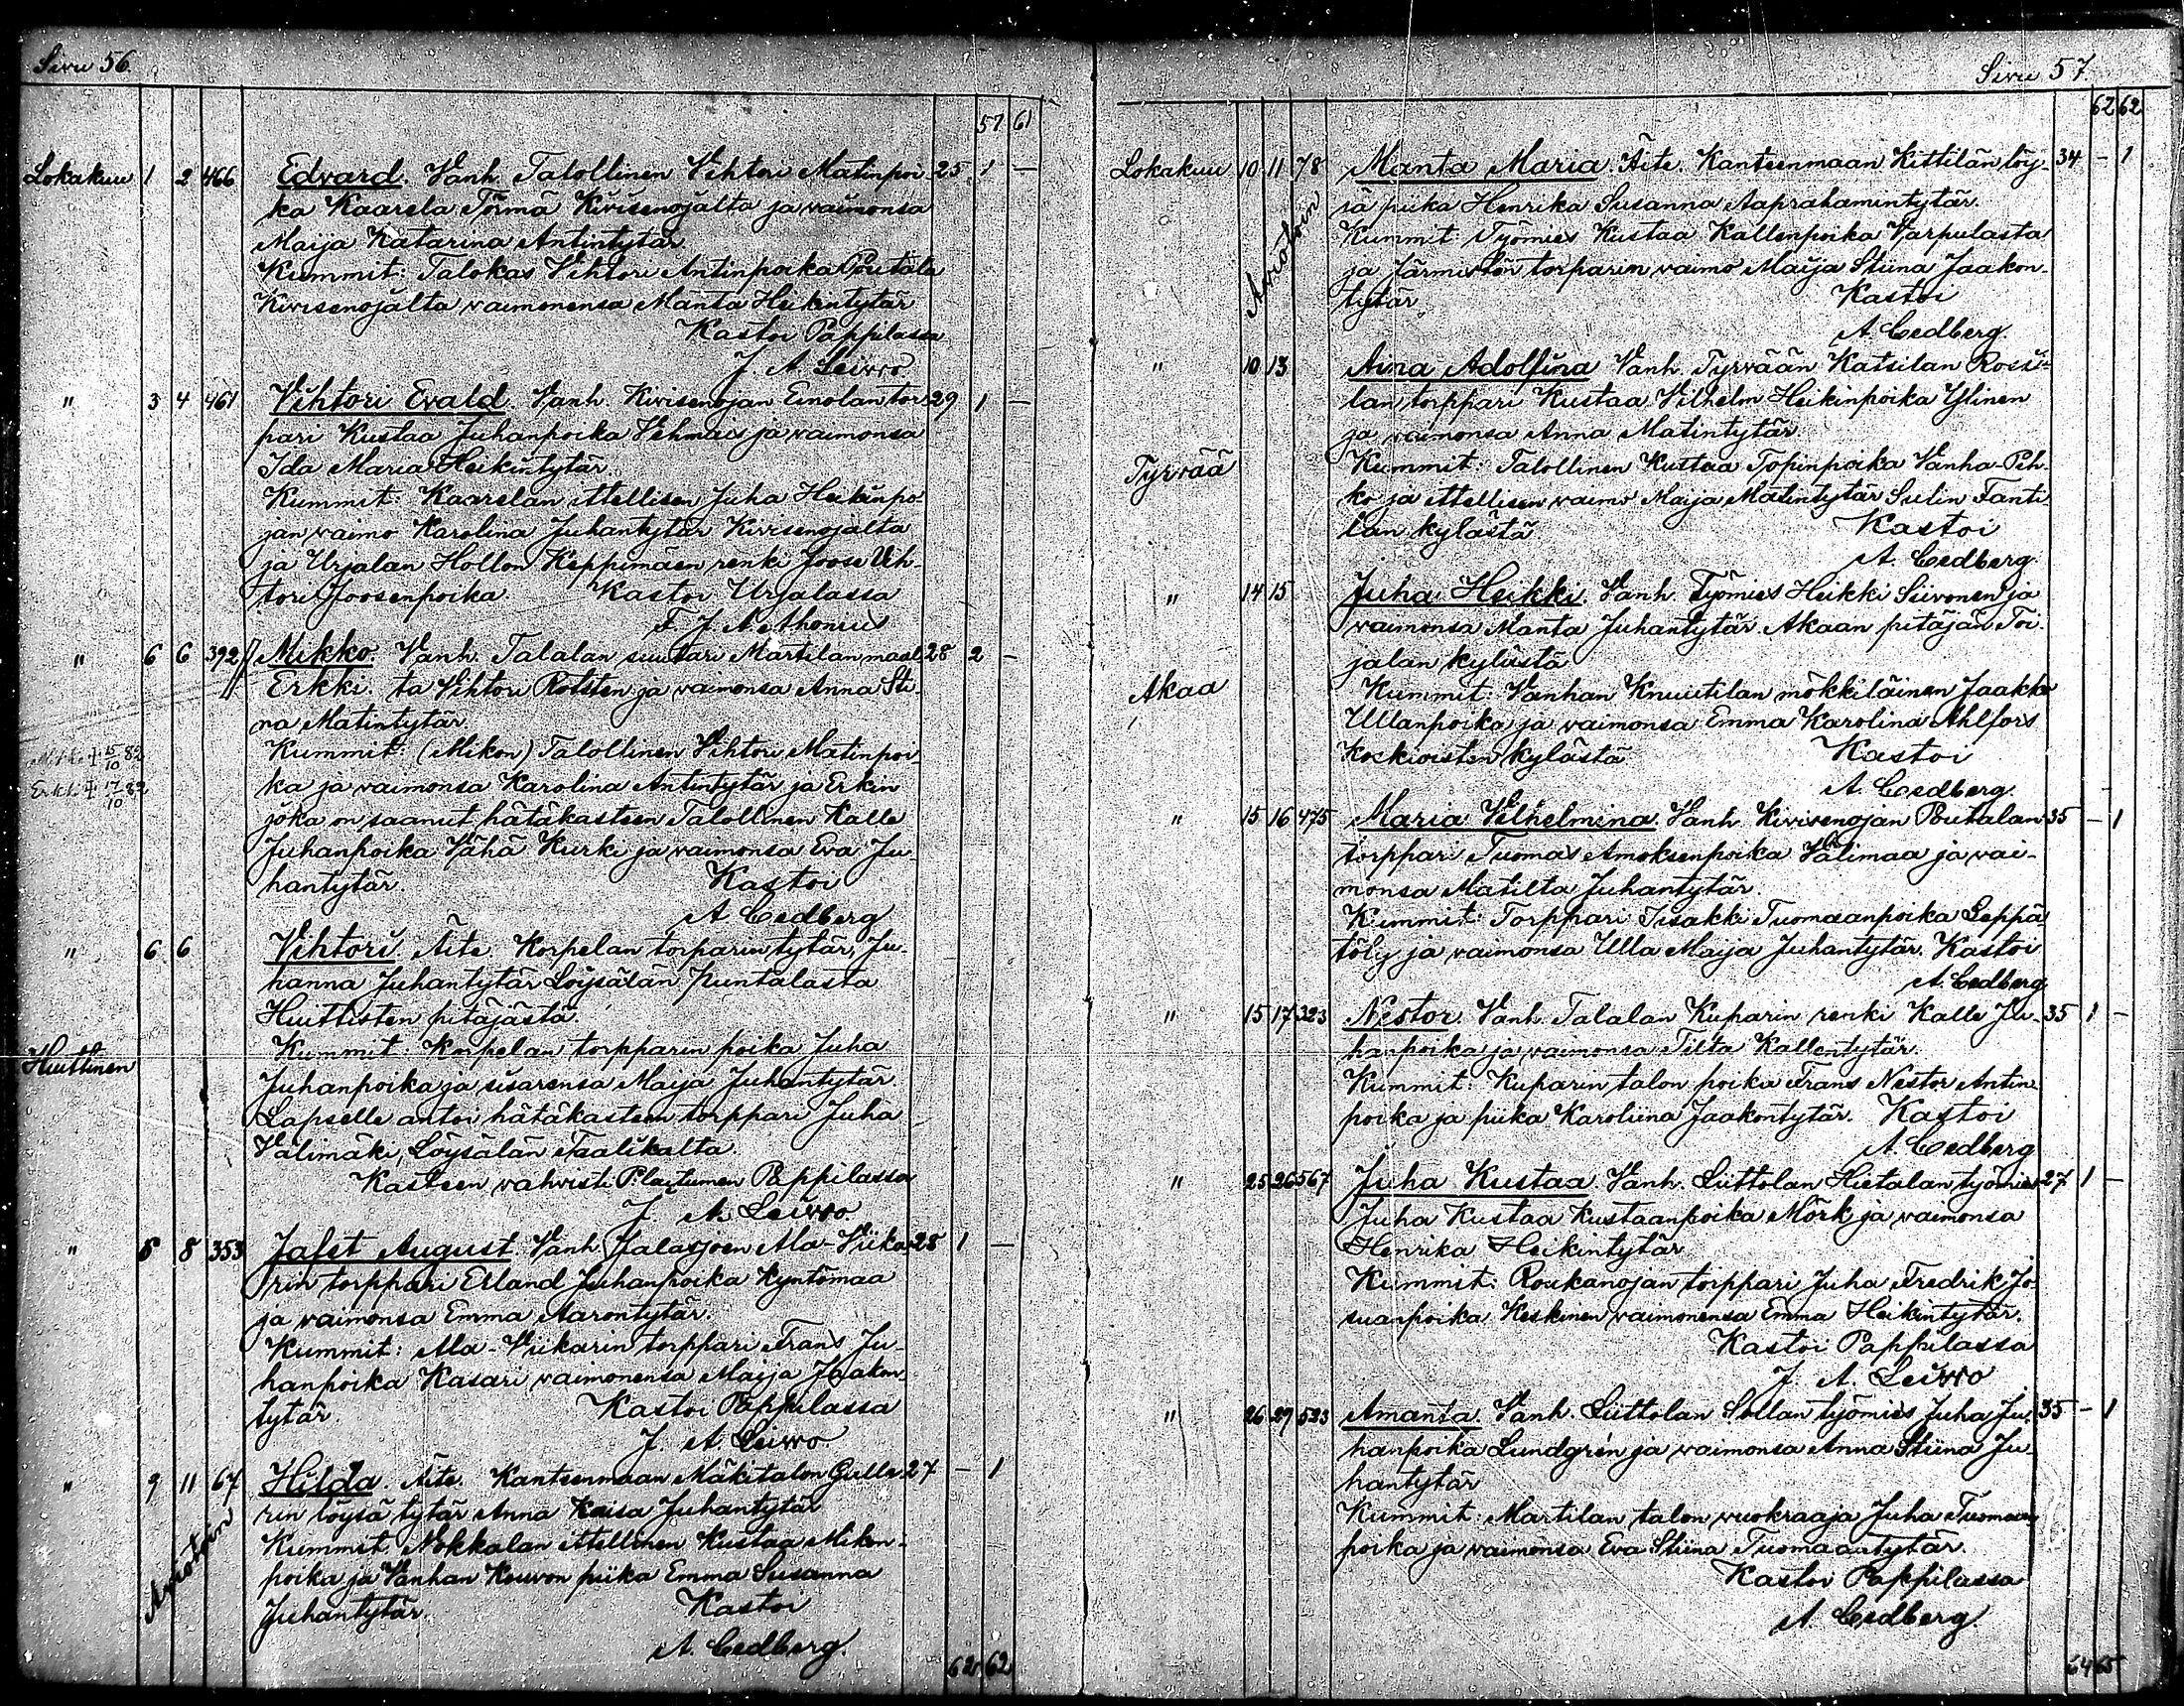 Sivu 56.
57 61
Lokakuu 1 2 466 Edvard. Vanh. Talollinen Vihtori Matinpoi- 25 1 —
ka Kaarela Törmä Kivisenojalta ja vaimonsa
Maija Katarina Antintytär
Kummit: Talokas Vihtori Antinpoika Poutala
Kivisenojalta vaimonensa Manta Heikintytär
Kastoi Pappilassa
J. A. Leivvo
" 3 4 461 Vihtori Evald. Vanh. Kivisenojan Einolan tor- 29 1 —
pari Kustaa Juhanpoika Vehmas ja vaimonsa
Ida Maria Heikintytär
Kummit: Kaarelan ittellisen Juha Heikinpo-
jan vaimo Karolina Juhantytär Kivisenojalta
ja Urjalan Hollon Keppimäen renki Joose Vih-
tori Joosenpoika. Kastoi Urjalassa
F. J. A.
" 6 6 392 Mikko. Vanh. Talalan suutari Martilan maal- 28 2 -
Erkki. ta Vihtori Rolsten ja vaimonsa Anna Sti-
na Matintytär
Kummit: (Mikon) Talollinen Vihtori Matinpoi-
ka ja vaimonsa Karolina Antintytär ja Erkin
joka on saanut hätäkasteen Talollinen Kalle
Juhanpoika Vähä Kurki ja vaimonsa Eva Ju-
hantytär. Kastoi
A Cedberg
Mikko ‡ 15/10 82
Erkki ‡ 17/10 82
" 6 6 Vihtori Äite Korpelan torparin tytär, Ju-
hanna Juhantytär Löysälän Puntalasta
Huittisten pitäjästä.
Huittinen
Kummit: Korpelan torpparin poika Juha
Juhanpoika ja sisarensa Maija Juhantytär.
Lapselle antoi hätäkasteen torppari Juha
Välimäki, Löysälän Taalikalta.
Kasteen vahvisti Pappilassa
J. A. Leivvo
" 8 8 353 Jafet August. Vanh. Jalasjoen Ala-Viika- 28 1 —
rin torppari Erland Juhanpoika Kyntömaa
ja vaimonsa Emma Aarontytär.
Kummit: Ala-Viikarin torppari Frans Ju-
hanpoika Kasari vaimonensa Maija Jaakon-
tytär. Kastoi Pappilassa
J. A. Leivvo
" 9 11 67 Hilda. Äite. Kanteenmaan Mäkitalon Gulle- 27 — 1
Aviotoin
rin löysä tytär Anna Kaisa Juhantytär
Kummit. Nokkalan ittellinen Kustaa Mikon-
poika ja Vanhan Kouvon piika Emma Susanna
Juhantytär. Kastoi
A. Cedberg.
62 62
Sivu 57.
62 62
Lokakuu 10 11 78 Manta Maria. Äite. Kanteenmaan Kittilän löy- 34 - 1
Aviotoin
sä piika Henrika Susanna Aaprahamintytär.
Kummit Työmies Kustaa Kallenpoika Varpulasta
ja Järmistön torparin vaimo Maija Stiina Jaakon-
tytär Kastoi
A. Cedberg.
" 10 13 Aina Adolfina Vanh. Tyrvään Katsilan Rossi-
lan torppari Kustaa Vilhelm Heikinpoika Ylinen
ja vaimonsa Anna Matintytär.
Tyrvää
Kummit: Talollinen Kustaa Topinpoika Vanha-Peh-
ko ja ittellisen vaimo Maija Matintytär Sulin Tanti-
lan kylästä. Kastoi
A. Cedberg.
" 14 15 Juha Heikki. Vanh. Työmies Heikki Siivonen ja
vaimonsa Manta Juhantytär Akaan pitäjän Toi-
jalan kylästä
Akaa
Kummit: Vanhan Knuutilan mökkiläinen Jaakko
Ullanpoika ja vaimonsa Emma Karolina Ahlfors
Koskioisten kylästä Kastoi
A. Cedberg.
" 15 16 475 Maria Vilhelmina. Vanh. Kivisenojan Poutalan 35 — 1
torppari Tuomas Amoksenpoika Välimaa ja vai-
monsa Matilta Juhantytär.
Kummit: Torppari Iisakki Tuomaanpoika Leppä-
töly ja vaimonsa Ulla Maija Juhantytär. Kastoi
A. Cedberg
" 15 17 323 Nestor. Vanh. Talalan Kuparin renki Kalle Ju- 35 1 -
hanpoika ja vaimonsa Tilta Kallentytär.
Kummit: Kuparin talon poika Frans Nestor Antin-
poika ja piika Karoliina Jaakontytär. Kastoi
A. Cedberg
" 25 26 567 Juha Kustaa. Vanh. Liittolan Hietalan työmies 27 1 -
Juha Kustaa Kustaanpoika Mörk ja vaimonsa
Henrika Heikintytär
Kummit: Roukanojan torppari Juha Fredrik Jo-
suanpoika Keskinen vaimonensa Emma Heikintytär.
Kastoi Pappilassa
J. A. Leivvo
" 26 27 523 Amanta. Vanh. Liittolan Sollan työmies Juha Ju- 35 - 1
hanpoika Lundgrén ja vaimonsa Anna Stiina Ju-
hantytär
Kummit: Martilan talon vuokraaja Juha Tuomaan
poika ja vaimonsa Eva Stiina Tuomaantytär.
Kastoi Pappilassa
A. Cedberg.
64 65